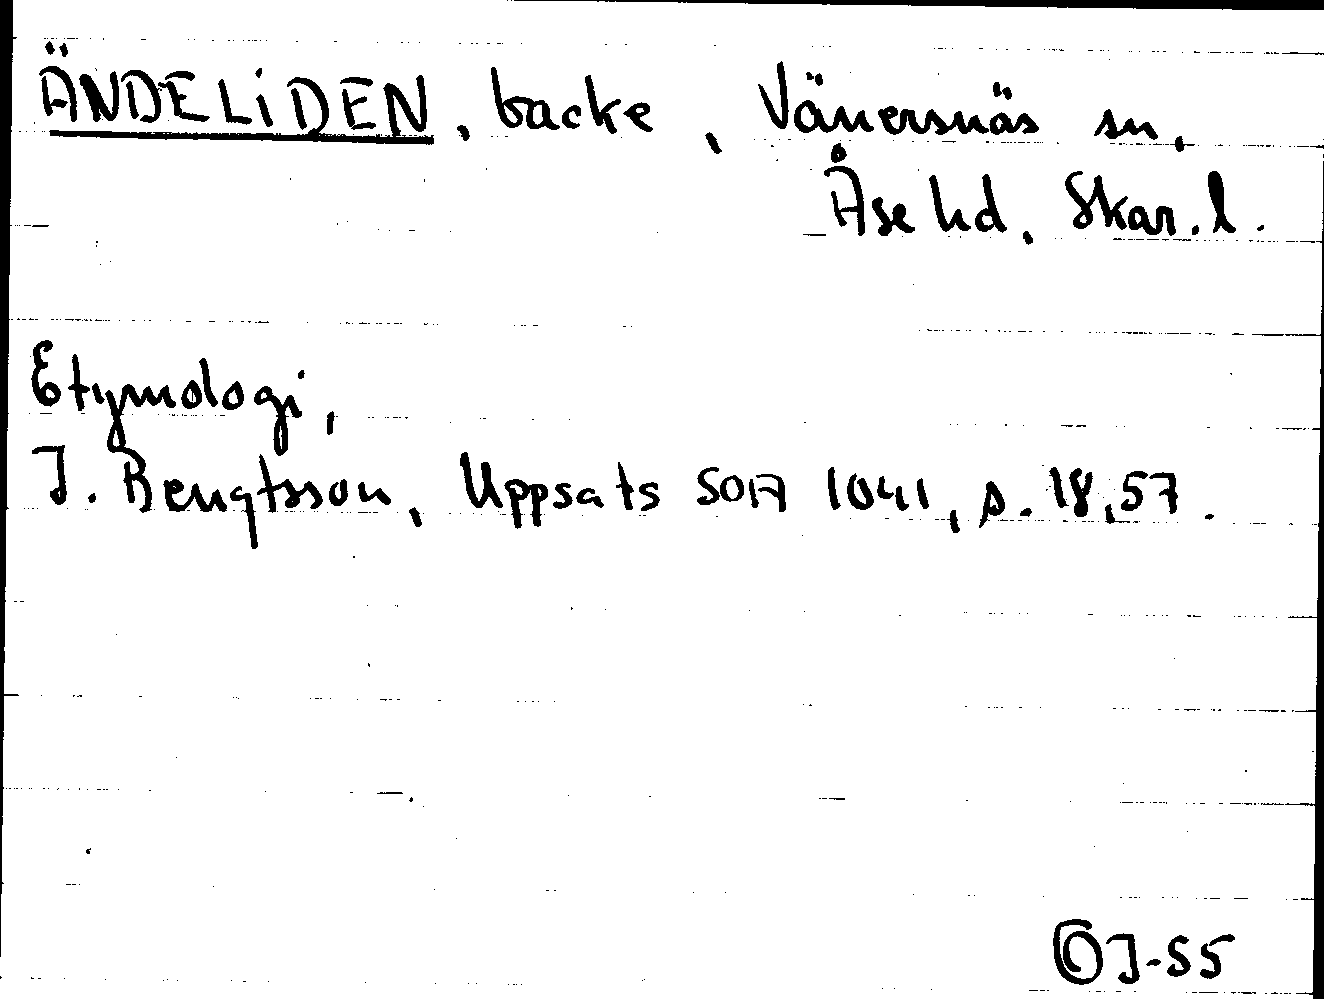 ÄNDELiDEN, backe, Vänersnäs sn,
Åse hd, Skar. l.
Etymologi,
J. Bengtsson, Uppsats SOA 1041, s. 18, 57.
J-S5